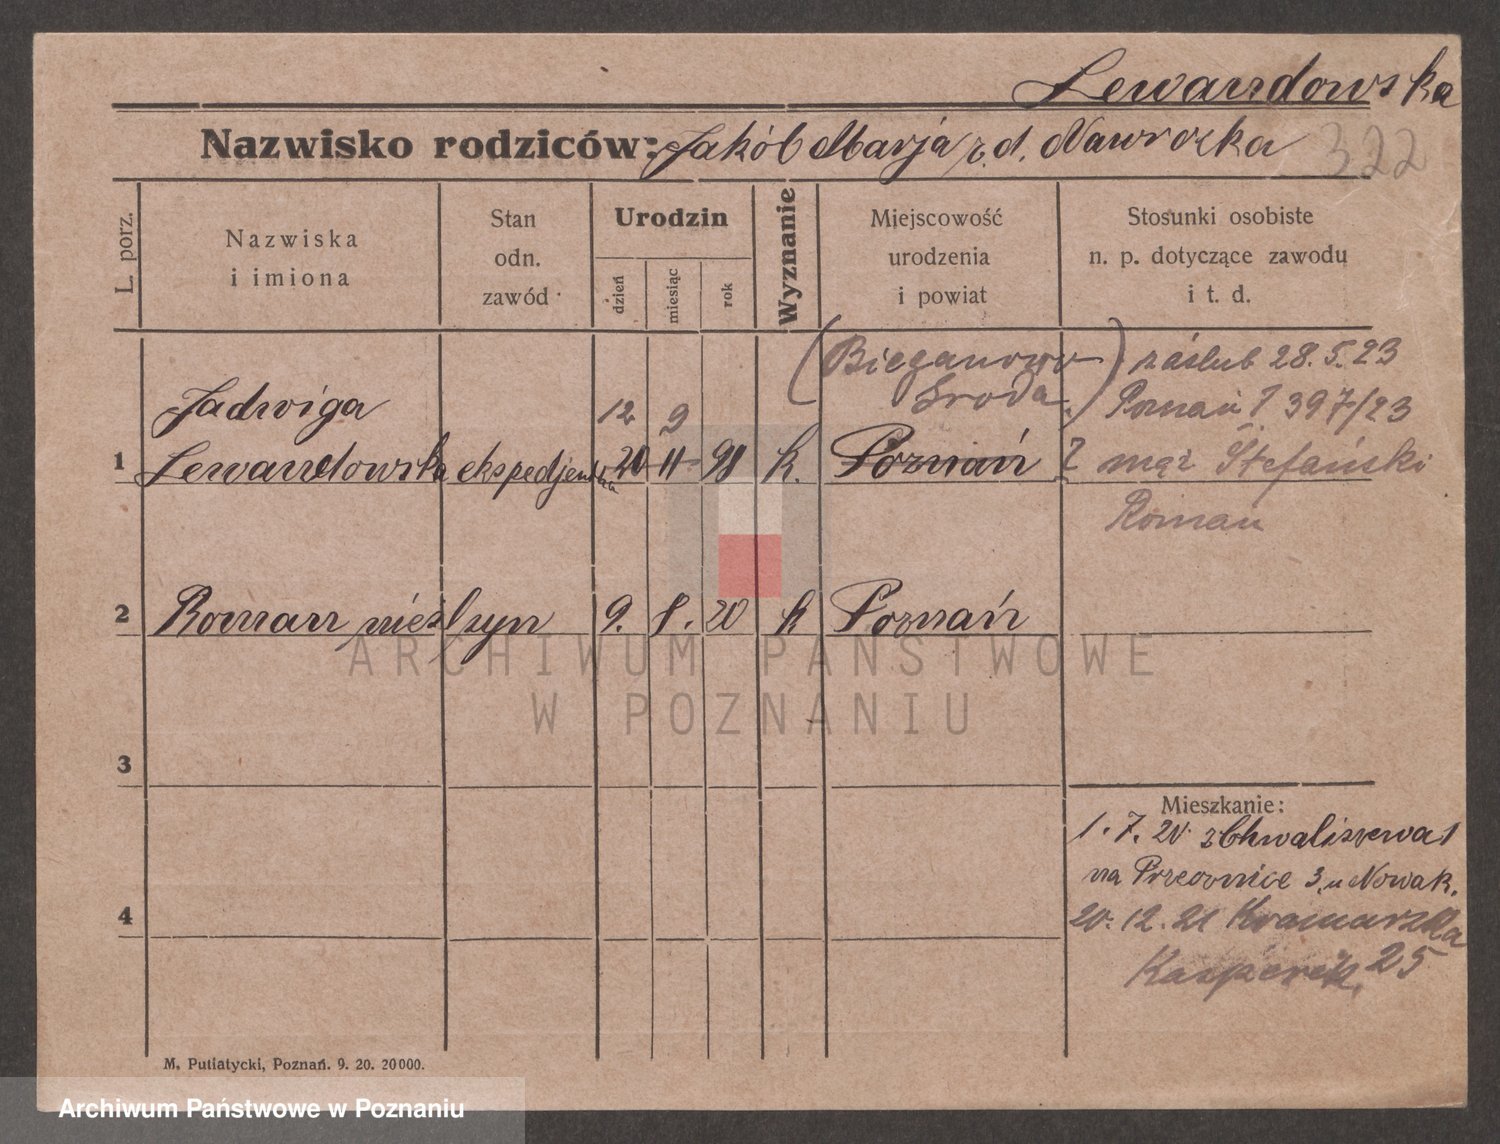 Lewandowska
Nazwisko rodziców: Jakób Marja z.d. Nawrocka 322
L. porz.
Nazwiska
i imiona
Stan
odn.
zawód
Urodzin
dzień
miesiąc
rok
Wyznanie
Miejscowość
urodzenia
i powiat
Stosunki osobiste
n. p. dotyczące zawodu
i t. d.
(Bieganowo
Środa.)
zaślub 28.5.23
Poznań I 397/23
mąż Stefański
Roman
Jadwiga
12 9
1 Lewandowska ekspedjentka 20 11 98 k. Poznań
2 Roman nieślzyn 9. 8. 20 k Poznań
3
4
Mieszkanie:
1.7.20 z Chwaliszewa 1
na 3, u Nowak.
20.12.21 Kramarska
Kasperek, 25
M. Putiatycki, Poznań. 9. 20. 20000.
ARCHIWUM PAŃSTWOWE
W POZNANIU
Archiwum Państwowe w Poznaniu